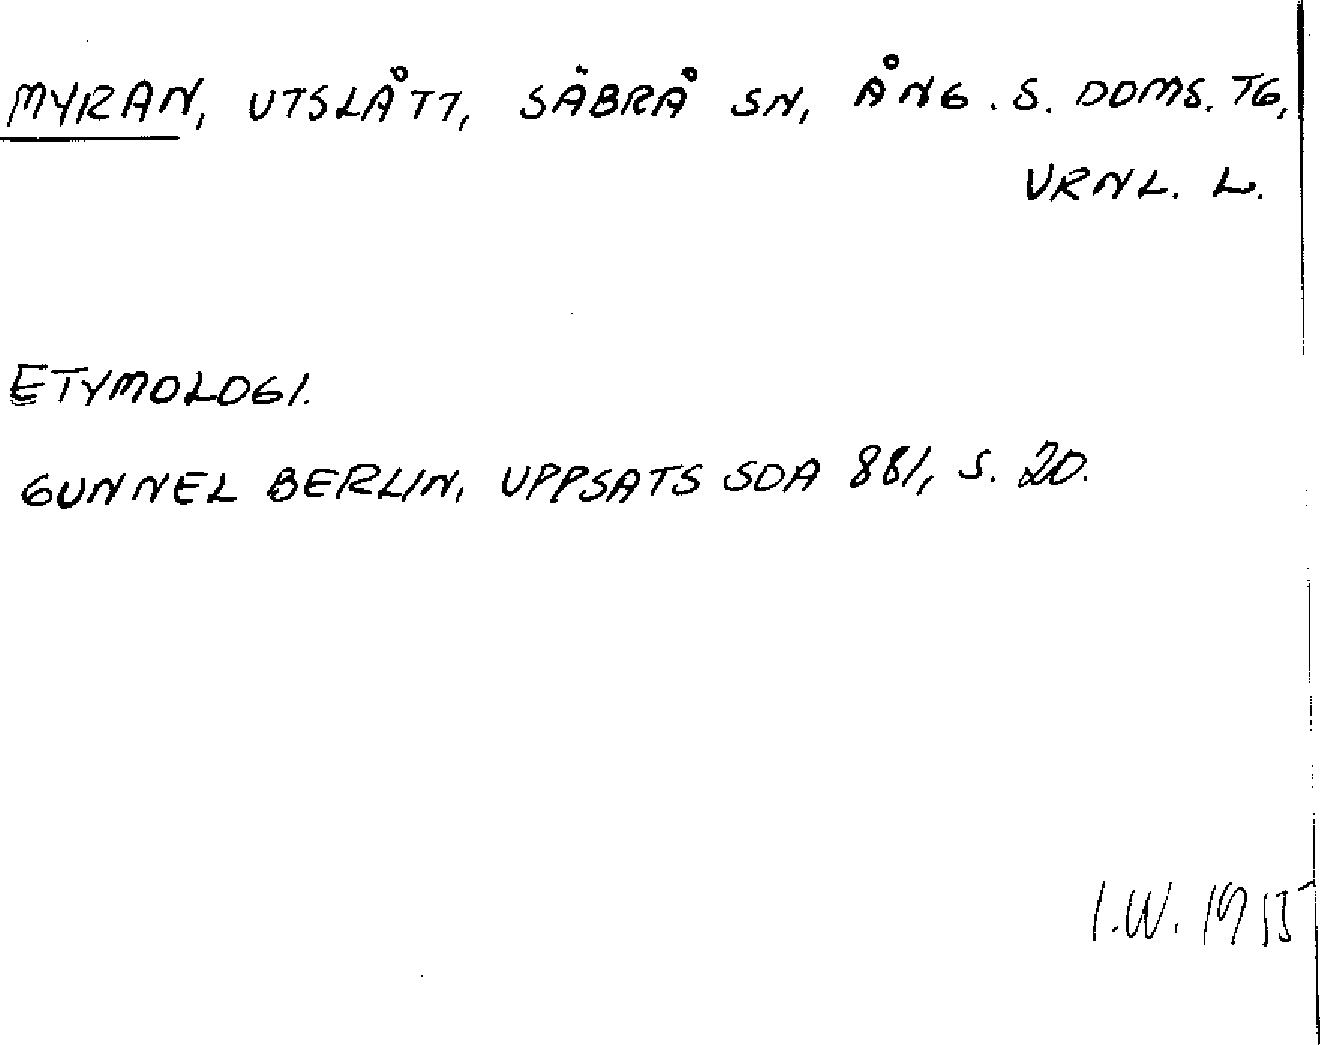 MYRAN, UTSLÅTT, SÄBRÅ SN, ÅNG. S. DOMS. TG,
VRNL. L.
ETYMOLOGI.
GUNNEL BERLIN, UPPSATS SOA 881, S. 20.
I.W. 1955